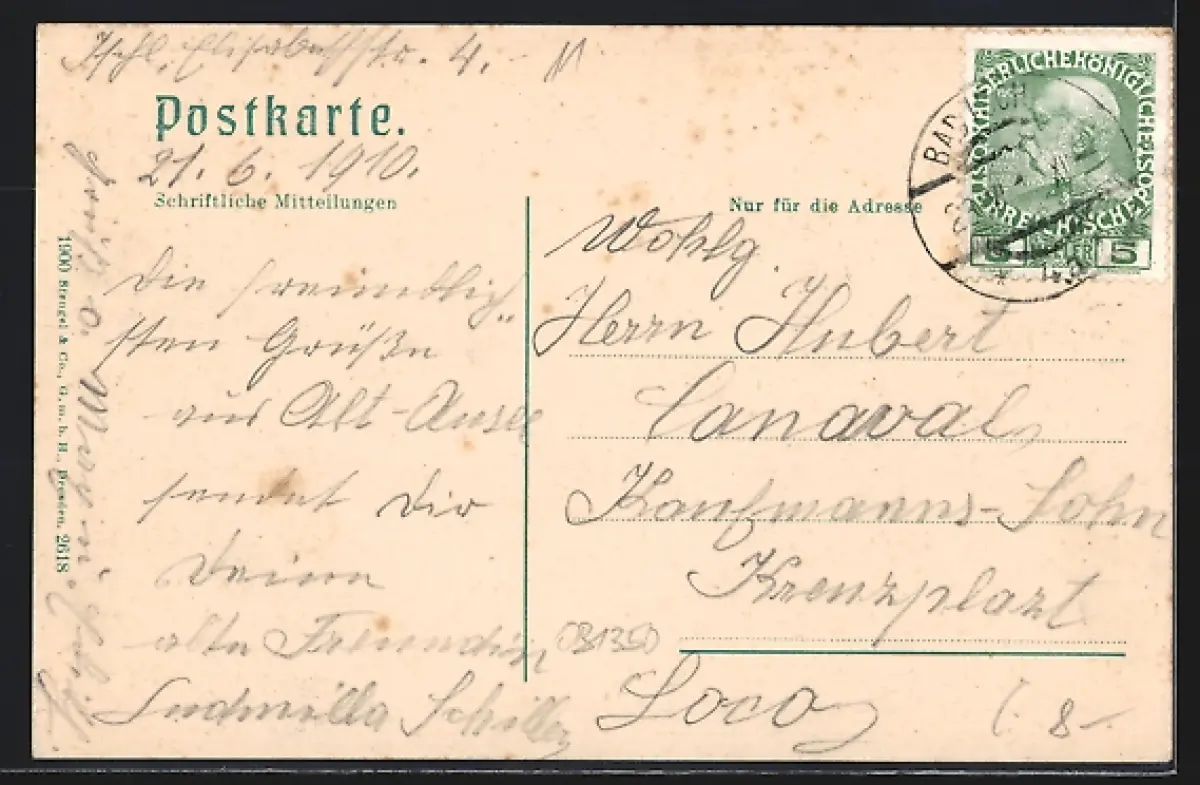 Ischl, Elisabethstr. 4.
Postkarte.
21. 6. 1910.
Schriftliche Mitteilungen
Die freundlich„
sten Grüße
aus Alt-Aussee
sendet Dir
Deine
alte Freundin
Ludmilla Schiller
1900 Stengel & Co., G. m. b. H., Dresden. 2618
Nur für die Adresse
Wohlg.
Herrn Hubert
Canaval,
Kaufmanns-Sohn
Kreuzplatz
Loco
KAISERLICHE KÖNIGLICHE ÖSTERREICHISCHE POST
5 HELLER 5
BAD ISCHL
8-